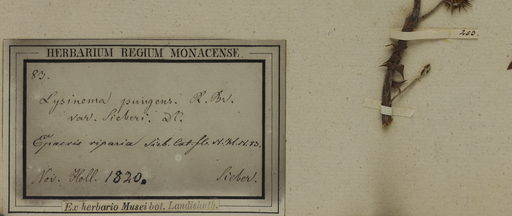 HERBARIUM REGIUM MONACENSE.
83.
Lysinema pungens. R. Br.
var. Sieberi. DC.
Epacris riparia Sieb. Cat. fl. N. Hl. N. 83.
Nov. Holl. 1820. Sieber.
Ex herbario Musei bot. Landishuth.
253